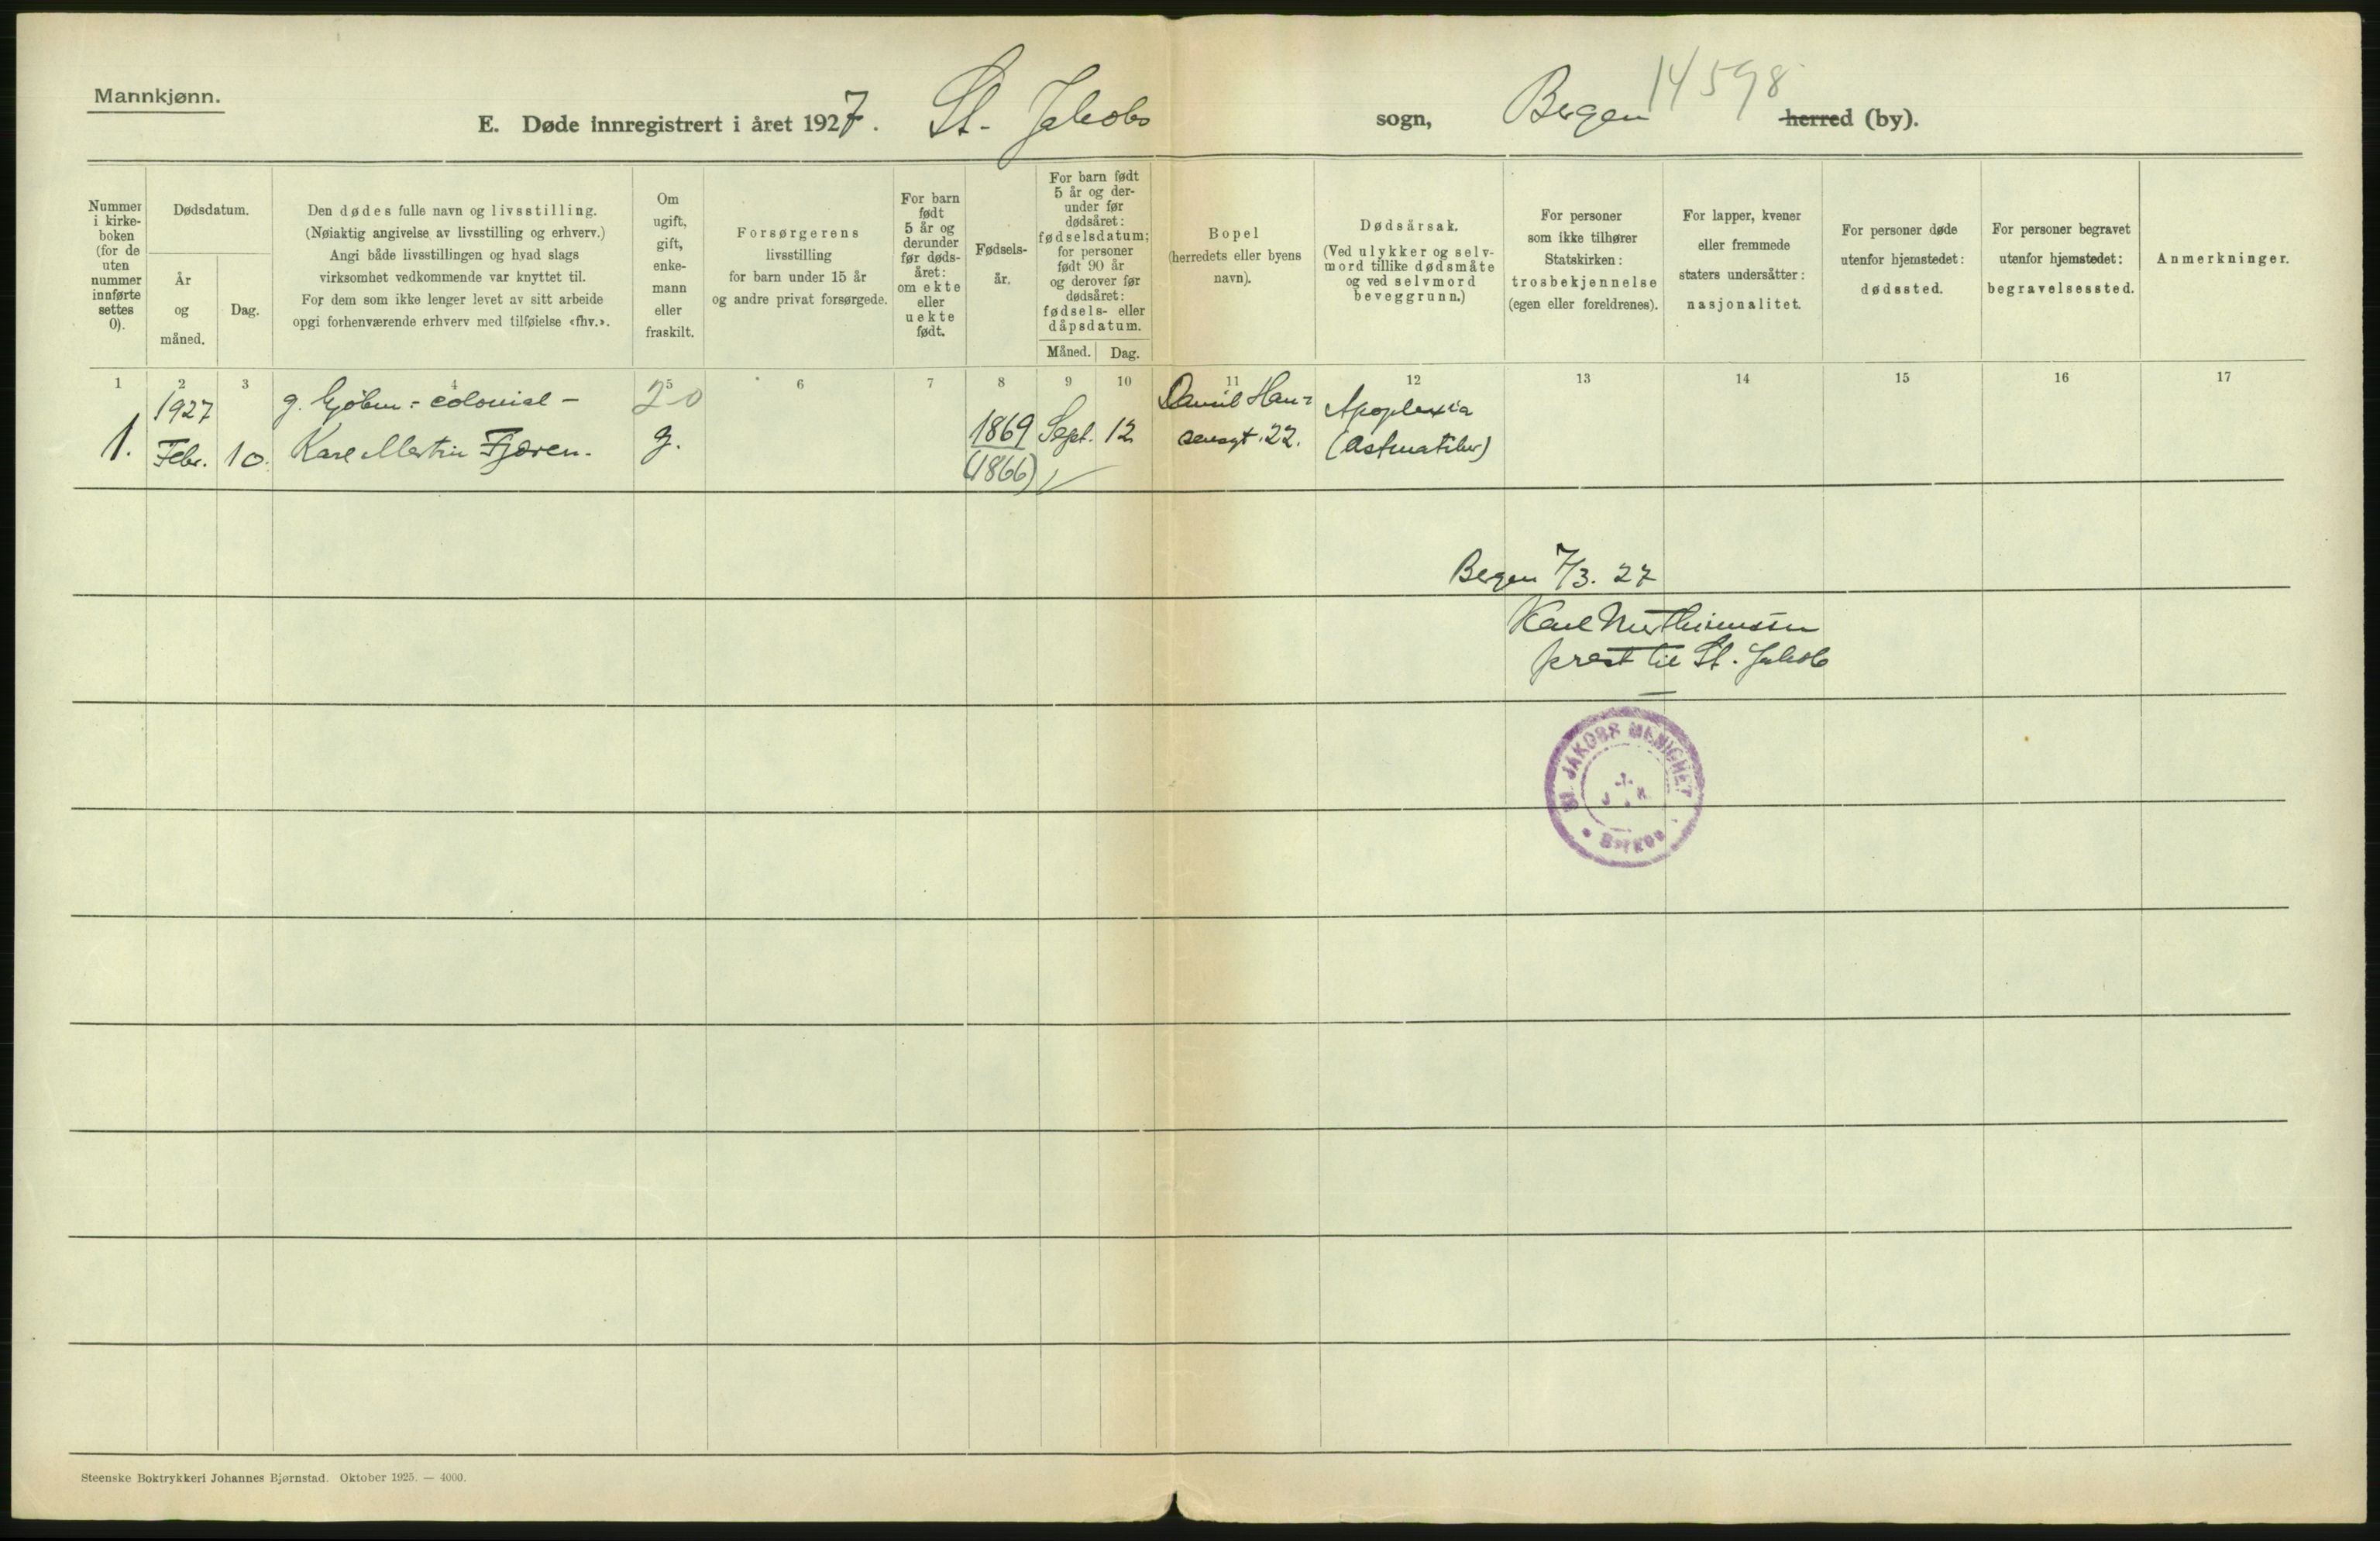 Mannkjønn.
14598
E. Døde innregistrert i året 1927. St. Jakobs sogn, Bergen herred (by).
Nummer
i kirke-
boken
(for de
uten
nummer
innførte
settes
0).
Dødsdatum.
År
og
måned.
Dag.
Den dødes fulle navn og livsstilling.
(Nøiaktig angivelse av livsstilling og erhverv.)
Angi både livsstillingen og hvad slags
virksomhet vedkommende var knyttet til.
For dem som ikke lenger levet av sitt arbeide
opgi forhenværende erhverv med tilføielse «fhv.».
Om
ugift,
gift,
enke-
mann
eller
fraskilt.
Forsørgerens
livsstilling
for barn under 15 år
og andre privat forsørgede.
For barn
født
5 år og
derunder
før døds-
året:
om ekte
eller
uekte
født.
Fødsels-
år.
For barn født
5 år og der-
under før
dødsåret:
fødselsdatum;
for personer
født 90 år
og derover før
dødsåret:
fødsels- eller
dåpsdatum.
Måned. Dag.
Bopel
(herredets eller byens
navn).
Dødsårsak.
(Ved ulykker og selv-
mord tillike dødsmåte
og ved selvmord
beveggrunn.)
For personer
som ikke tilhører
Statskirken:
trosbekjennelse
(egen eller foreldrenes).
For lapper, kvener
eller fremmede
staters undersåtter:
nasjonalitet.
For personer døde
utenfor hjemstedet:
dødssted.
For personer begravet
utenfor hjemstedet:
begravelsessted.
Anmerkninger.
1 2 3 4 5 6 7 8 9 10 11 12 13 14 15 16 17
1927 g. Kjøbm: colonial - 20 Daniel Han= Apoplexia
1. Febr. 10. Karl Martin Fjæren. g. 1869 Sept. 12 sensgt. 22. (Astmatiker)
(1866)
Bergen 7/3. 27
Karl
prest til St. Jakob
ST. JAKOBS MENIGHET
Bergen
Steenske Boktrykkeri Johannes Bjørnstad. Oktober 1925. — 4000.